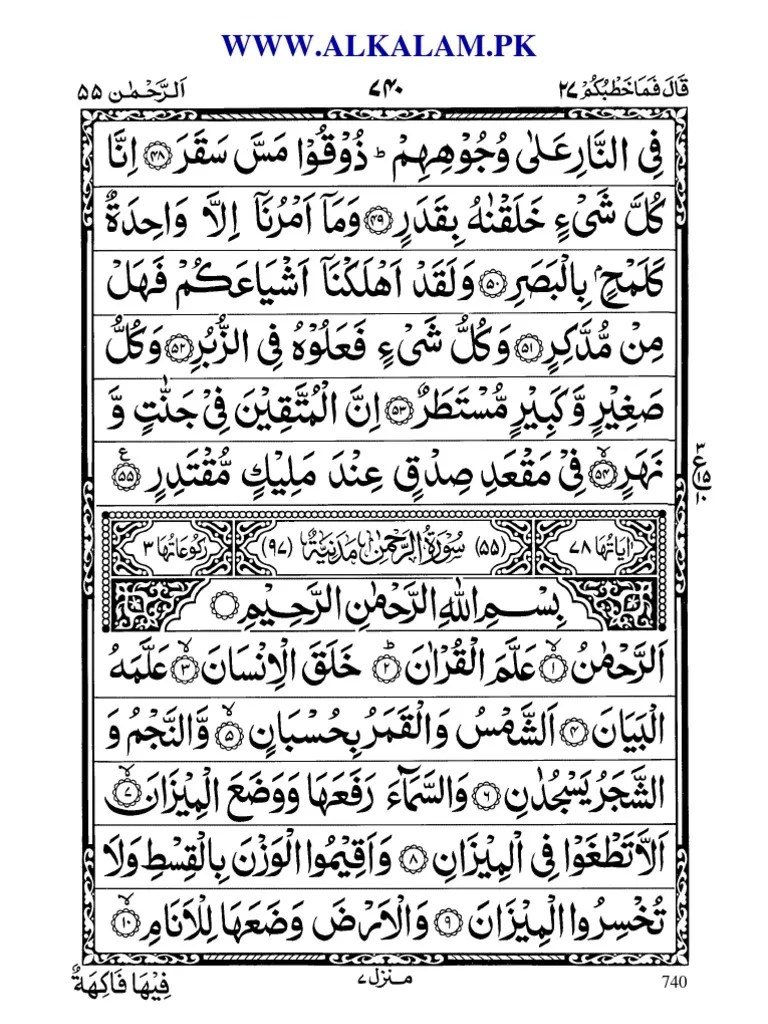 WWW.ALKALAM.PK
قَالَ فَمَا خَطْبُكُمْ ٢٧ ٧٤٠ اَلرَّحْمٰن ٥٥
فِی النَّارِ عَلٰی وُجُوْهِهِمْ ؕ ذُوْقُوْا مَسَّ سَقَرَ ﴿۴۸﴾ اِنَّا
كُلَّ شَیْءٍ خَلَقْنٰهُ بِقَدَرٍ ﴿۴۹﴾ وَمَاۤ اَمْرُنَاۤ اِلَّا وَاحِدَةٌ
كَلَمْحٍۭ بِالْبَصَرِ ﴿۵۰﴾ وَلَقَدْ اَهْلَكْنَاۤ اَشْیَاعَكُمْ فَهَلْ
مِنْ مُّدَّكِرٍ ﴿۵۱﴾ وَكُلُّ شَیْءٍ فَعَلُوْهُ فِی الزُّبُرِ ﴿۵۲﴾ وَكُلُّ
صَغِیْرٍ وَّكَبِیْرٍ مُّسْتَطَرٌ ﴿۵۳﴾ اِنَّ الْمُتَّقِیْنَ فِیْ جَنّٰتٍ وَّ
نَهَرٍ ﴿۵۴﴾ۙ فِیْ مَقْعَدِ صِدْقٍ عِنْدَ مَلِیْكٍ مُّقْتَدِرٍ ﴿۵۵﴾ ع
٣ ع ١٥ ١٠
اٰیَاتُهَا ٧٨ (٥٥) سُوْرَةُ الرَّحْمٰنِ مَدَنِیَّةٌ (٩٧) رُكُوْعَاتُهَا ٣
بِسْمِ اللّٰهِ الرَّحْمٰنِ الرَّحِیْمِ
اَلرَّحْمٰنُ ﴿۱﴾ۙ عَلَّمَ الْقُرْاٰنَ ﴿۲﴾ؕ خَلَقَ الْاِنْسَانَ ﴿۳﴾ۙ عَلَّمَهُ
الْبَیَانَ ﴿۴﴾ اَلشَّمْسُ وَالْقَمَرُ بِحُسْبَانٍ ﴿۵﴾ۙ وَّالنَّجْمُ وَ
الشَّجَرُ یَسْجُدٰنِ ﴿۶﴾ وَالسَّمَآءَ رَفَعَهَا وَوَضَعَ الْمِیْزَانَ ﴿۷﴾ۙ
اَلَّا تَطْغَوْا فِی الْمِیْزَانِ ﴿۸﴾ وَاَقِیْمُوا الْوَزْنَ بِالْقِسْطِ وَلَا
تُخْسِرُوا الْمِیْزَانَ ﴿۹﴾ وَالْاَرْضَ وَضَعَهَا لِلْاَنَامِ ﴿۱۰﴾ۙ
740 منزل ٧ فِیْهَا فَاكِهَةٌ